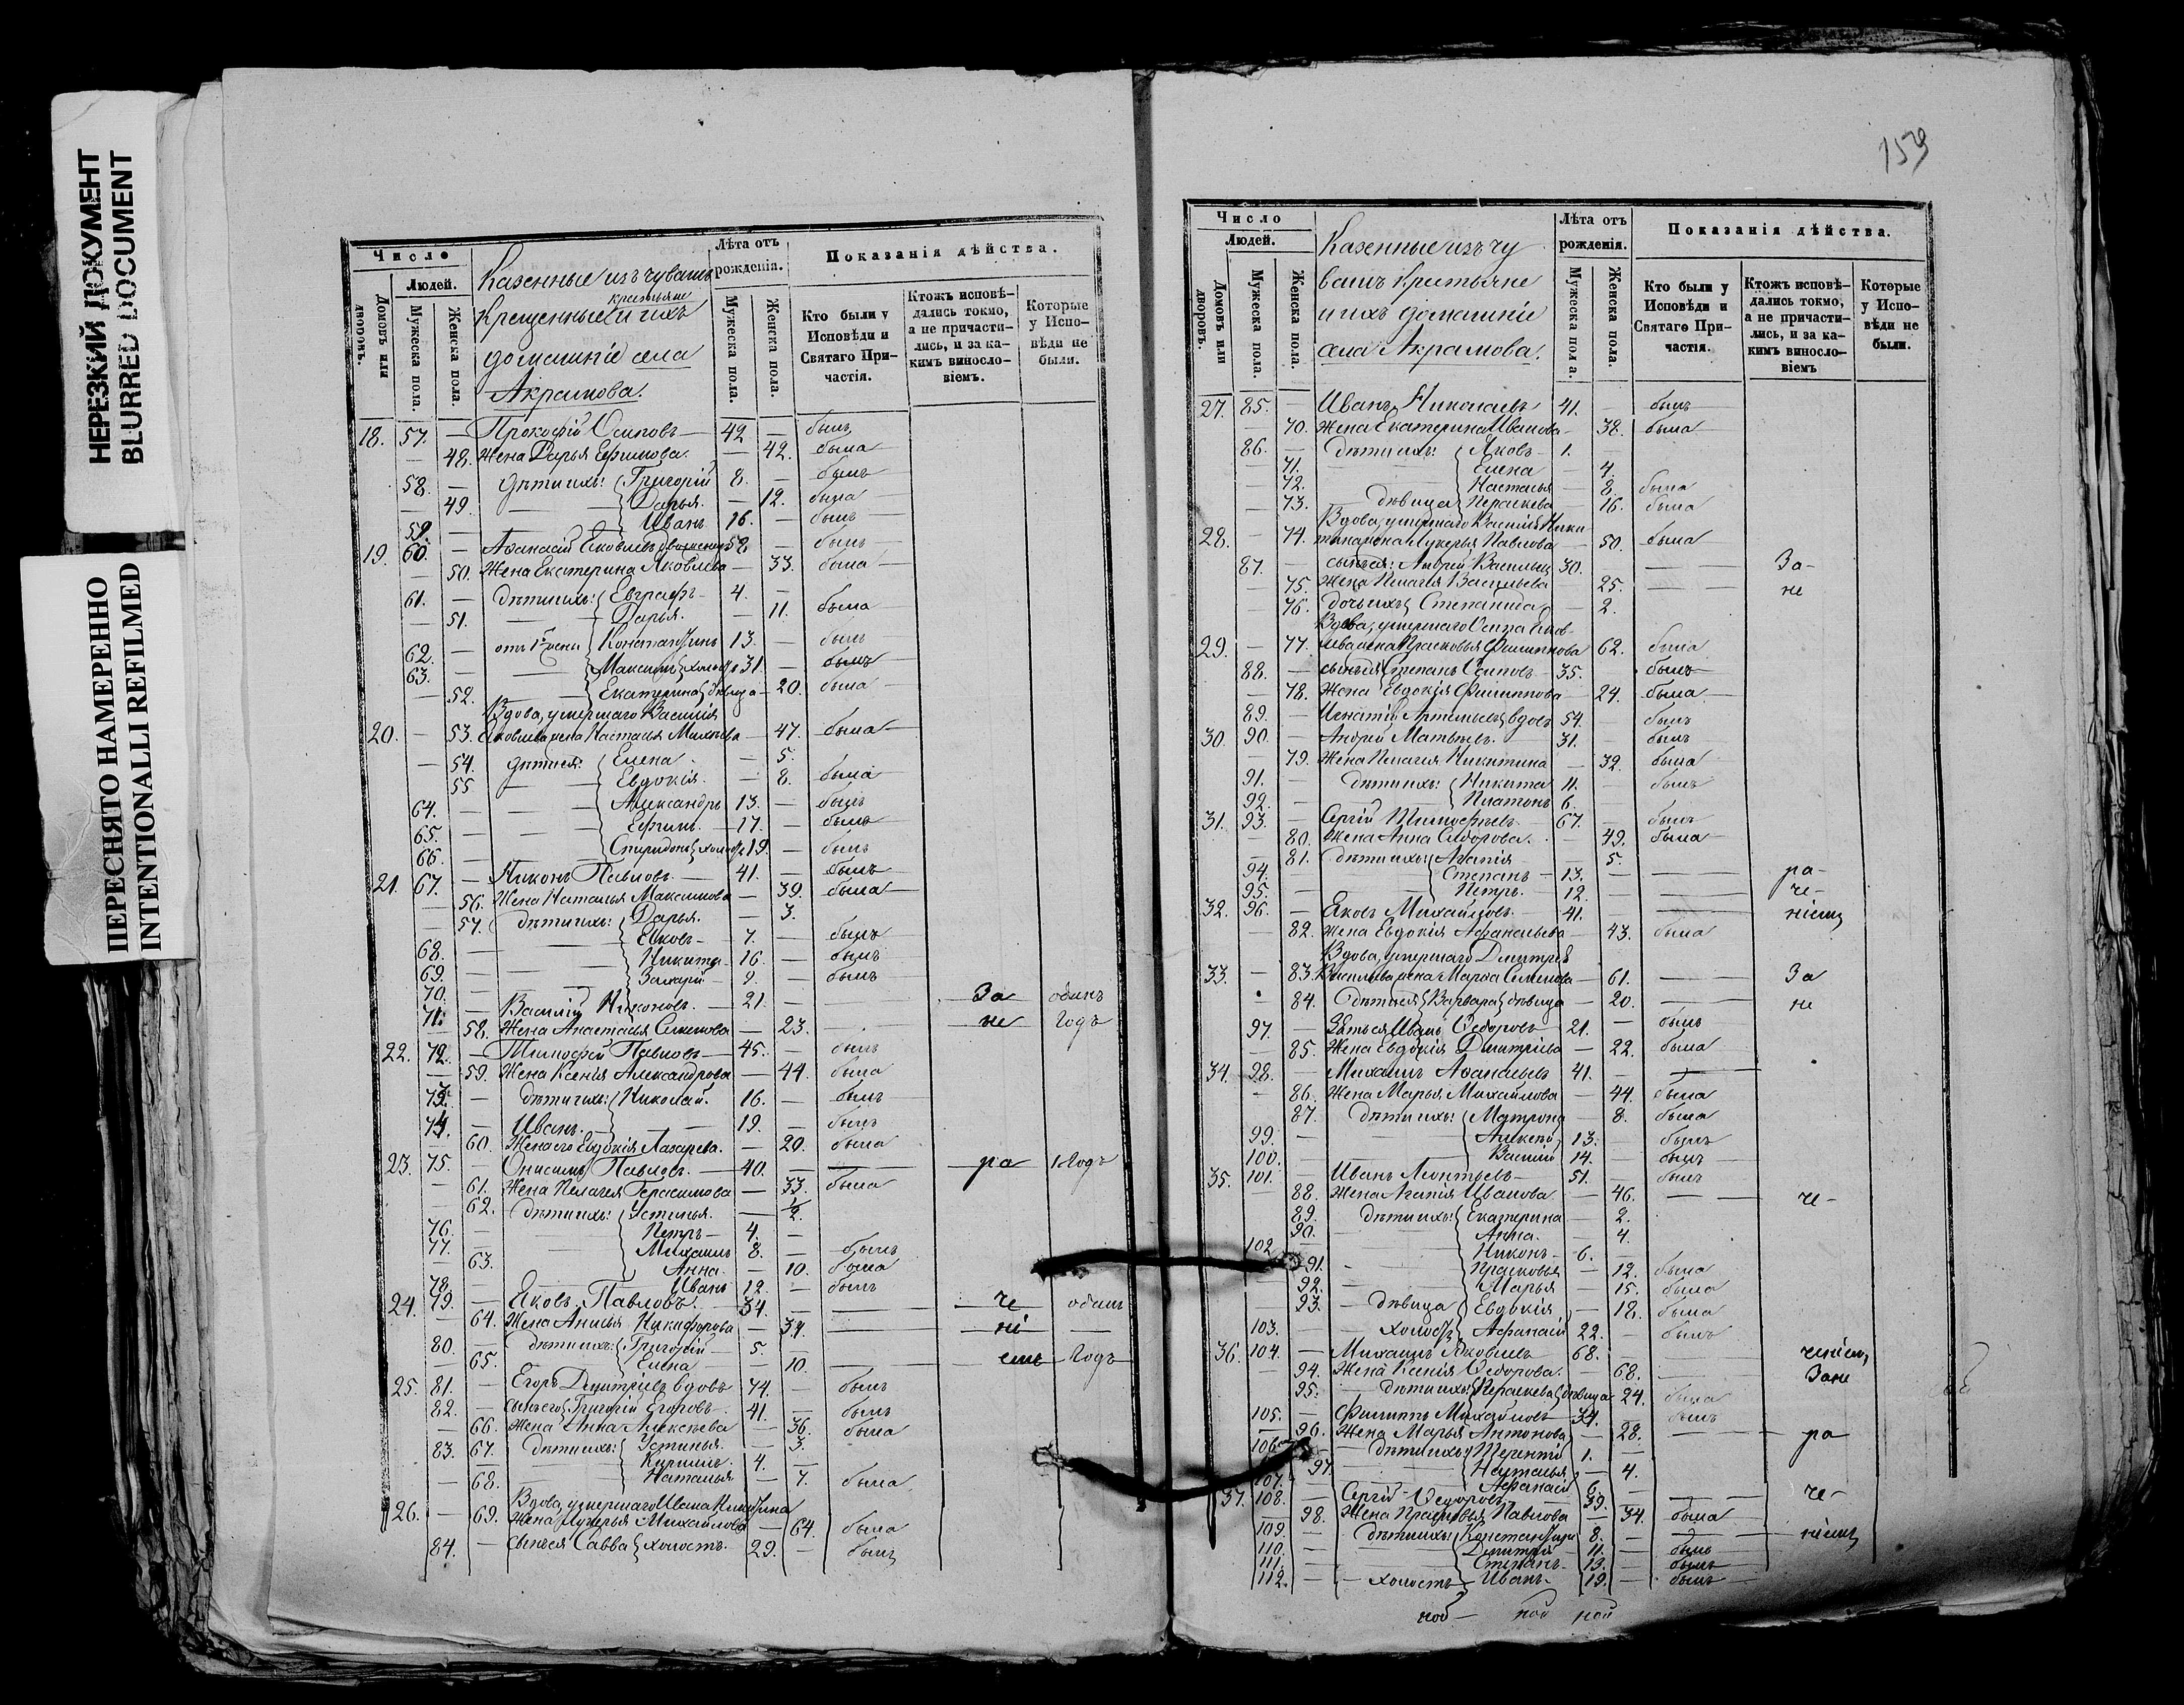 НЕРЕЗКИЙ ДОКУМЕНТ
BLURRED DOCUMENT
ПЕРЕСНЯТО НАМЕРЕННО
INTENTIONALLI REFILMED
Число
Людей.
Домовъ или дворовъ.
Мужеска пола.
Женска пола.
Казенные изъ чувашъ
крестьяне
Крещенные и ихъ
домашніе села
Акрамова.
Лѣта отъ рожденія.
Мужеска пола.
Женска пола.
Показанія дѣйства.
Кто были у Исповѣди и Святаго Причастія.
Ктожъ исповѣдались токмо, а не причастились, и за какимъ винословіемъ.
Которые у Исповѣди не были.
18. 57. — Прокофій Осиповъ — 42 — былъ
— 48. Жена Дарья Ефимова. — 42. была
58. — дѣти ихъ: Григорій 8. — былъ
— 49. — Дарья. — 12. была
59. — Иванъ 16. — былъ
19. 60. — Афанасій Яковлевъ 58 — былъ
— 50. Жена Екатерина Яковлева — 33. была
61. — дѣти ихъ: Евграфъ 4. —
— 51. — Дарья. — 11. была
62. — отъ 1й жены Константинъ 13. — былъ
63. — Максимъ холостъ 31. — былъ
— 52. — Екатерина дѣвица — 20. была
Вдова, умершаго Василія
20. — 53. Яковлева жена Настасья — 47. была
— 54. дѣти ея: Елена — 5.
— 55 — Евдокія. — 8. была
64. — Александръ 13. — былъ
65. — Ефимъ. 17. — былъ
66. — Спиридонъ холостъ 19. — былъ
21. 67. — Никонъ Павловъ. — 41. — былъ
— 56. Жена Наталья Максимова — 39. была
— 57. дѣти ихъ: Дарья. — 3.
68. — Яковъ 7. — былъ
69. — Никита 16. — былъ
70. — Захарій 9. — былъ
71. — Василій Никоновъ. — 21. — За одинъ
— 58. Жена Анастасья Семенова — 23. не годъ
22. 72. — Тимофей Павловъ — 45. — былъ
— 59. Жена Ксенія Александрова — 44. была
73. — дѣти ихъ: Николай. 16. — былъ
74. — Иванъ. 19. — былъ
— 60. Жена его Евдокія Лазарева. — 20. была
23. 75. — Онисимъ Павловъ. — 40. — ра 1 годъ
— 61. Жена Пелагея Герасимова — 33. была
— 62. дѣти ихъ: Устинья. — 1/2.
76. — Петръ 4. —
77. — Михаилъ 8. — былъ
— 63. Анна. — 10. была
78. — Иванъ 12. — былъ
24. 79. — Яковъ Павловъ. — 34. — че одинъ
— 64. Жена Анисья Никифорова — 34. — ні —
80. — дѣти ихъ: Григорій 5. —
— 65. Елена — 10. — емъ годъ
25. 81. — Егоръ Дмитріевъ вдовъ 74. — былъ
82. — сынъ его Григорій Егоровъ 41. — былъ
— 66. Жена Анна Алексѣева — 36. была
83. 67. дѣти ихъ: Устинья. — 3.
Кириллъ. 4. —
— 68. — Наталья — 7. была
Вдова, умершаго Ивана Никитина
26. — 69. Жена Лукерья Михайлова — 64. была
84. — сынъ ея Савва холостъ. 29. — былъ
159
Число
Людей.
Домовъ или дворовъ.
Мужеска пола.
Женска пола.
Казенные изъ чу
вашъ крестьяне
и ихъ домашніе
села Акрамова.
Лѣта отъ рожденія.
Мужеска пола.
Женска пола.
Показанія дѣйства.
Кто были у Исповѣди и Святаго Причастія.
Ктожъ исповѣдались токмо, а не причастились, и за какимъ винословіемъ
Которые у Исповѣди не были.
27. 85. — Иванъ Николаевъ 41. — былъ
— 70. Жена Екатерина Иванова — 38. была
86. — дѣти ихъ: Яковъ 1. —
— 71. — Елена — 4.
— 72. Настасья — 8. была
— 73. — дѣвица Пераскева — 16. была
Вдова, умершаго Василія Ники
28. — 74. тина жена Лукерья Павлова — 50. была
87. — сынъ ея: Андрей Васильевъ 30. — За-
— 75. Жена Пелагея Васильева — 25. — не
— 76. дочь ихъ Степанида — 2.
Вдова, умершаго Осипа Яков-
29. — 77. лева жена Прасковья Филиппова 62. была
88. — сынъ ея Степанъ Осиповъ 35. былъ
— 78. Жена Евдокія Филиппова — 24. была
89. — Игнатій Артемьевъ вдовъ 54. — былъ
30. 90. — Андрей Матвѣевъ. 31. — былъ
— 79. Жена Пелагея Никитина — 32. была
91. — дѣти ихъ: Никита 11. — былъ
92. — Платонъ 6.
31. 93. — Сергій Тимофѣевъ 67. — былъ
— 80. Жена Анна Сидорова. — 49. была
— 81. дѣти ихъ: Агапія — 5.
94. — Степанъ 13. — ра-
95. — Петръ. 12. — че-
32. 96. — Яковъ Михайловъ. 41. — ніемъ
— 82. Жена Евдокія Афанасьева — 43. была
Вдова, умершаго Дмитрія
33. — 83. Васильева жена Марѳа Семенова — 61. — За
— 84. дѣти ея Варвара дѣвица — 20. — не
97. — Зять ея Иванъ Ѳедоровъ 21. — былъ
— 85. Жена Евдокія Дмитріева — 22. была
34. 98. — Михаилъ Афанасьевъ 41. —
— 86. Жена Марья Михайлова — 44. была
— 87. дѣти ихъ: Матрона — 8. была
99. — Алексѣй 13. — былъ
100. — Василій 14. — былъ
35. 101. Иванъ Леонтьевъ 51. — былъ
— 88. Жена Агапія Иванова — 46. — че-
89. дѣти ихъ: Екатерина — 2.
90. — Анна. — 4.
102 Никонъ 6. —
91. — Прасковья — 12. была
92. Марья — 15. была
93. — дѣвица Евдокія — 18. была
103. — холостъ Афанасій 22. — былъ
36. 104. — Михаилъ Яковлевъ 68. — ченіем,
— 94. Жена Ксенія Ѳедорова. — 68. — Зане
95. — дѣти ихъ: Пераскева дѣвица 24. была
105. — Филиппъ Михайловъ 34. былъ
— 96. Жена Марья Антонова — 28. — ра
106. — дѣти ихъ Терентій 1. —
97. — Наталья — 4.
107. Афанасій 6. —
37. 108. — Сергій Ѳедоровъ 39. — че-
— 98. Жена Прасковья Павлова — 34. была
109. — дѣти ихъ: Константинъ 8. — ніемъ
110. — Дмитрій 11. — былъ
111. — Степанъ 13. — былъ
112. — холостъ Иванъ. 19. — былъ